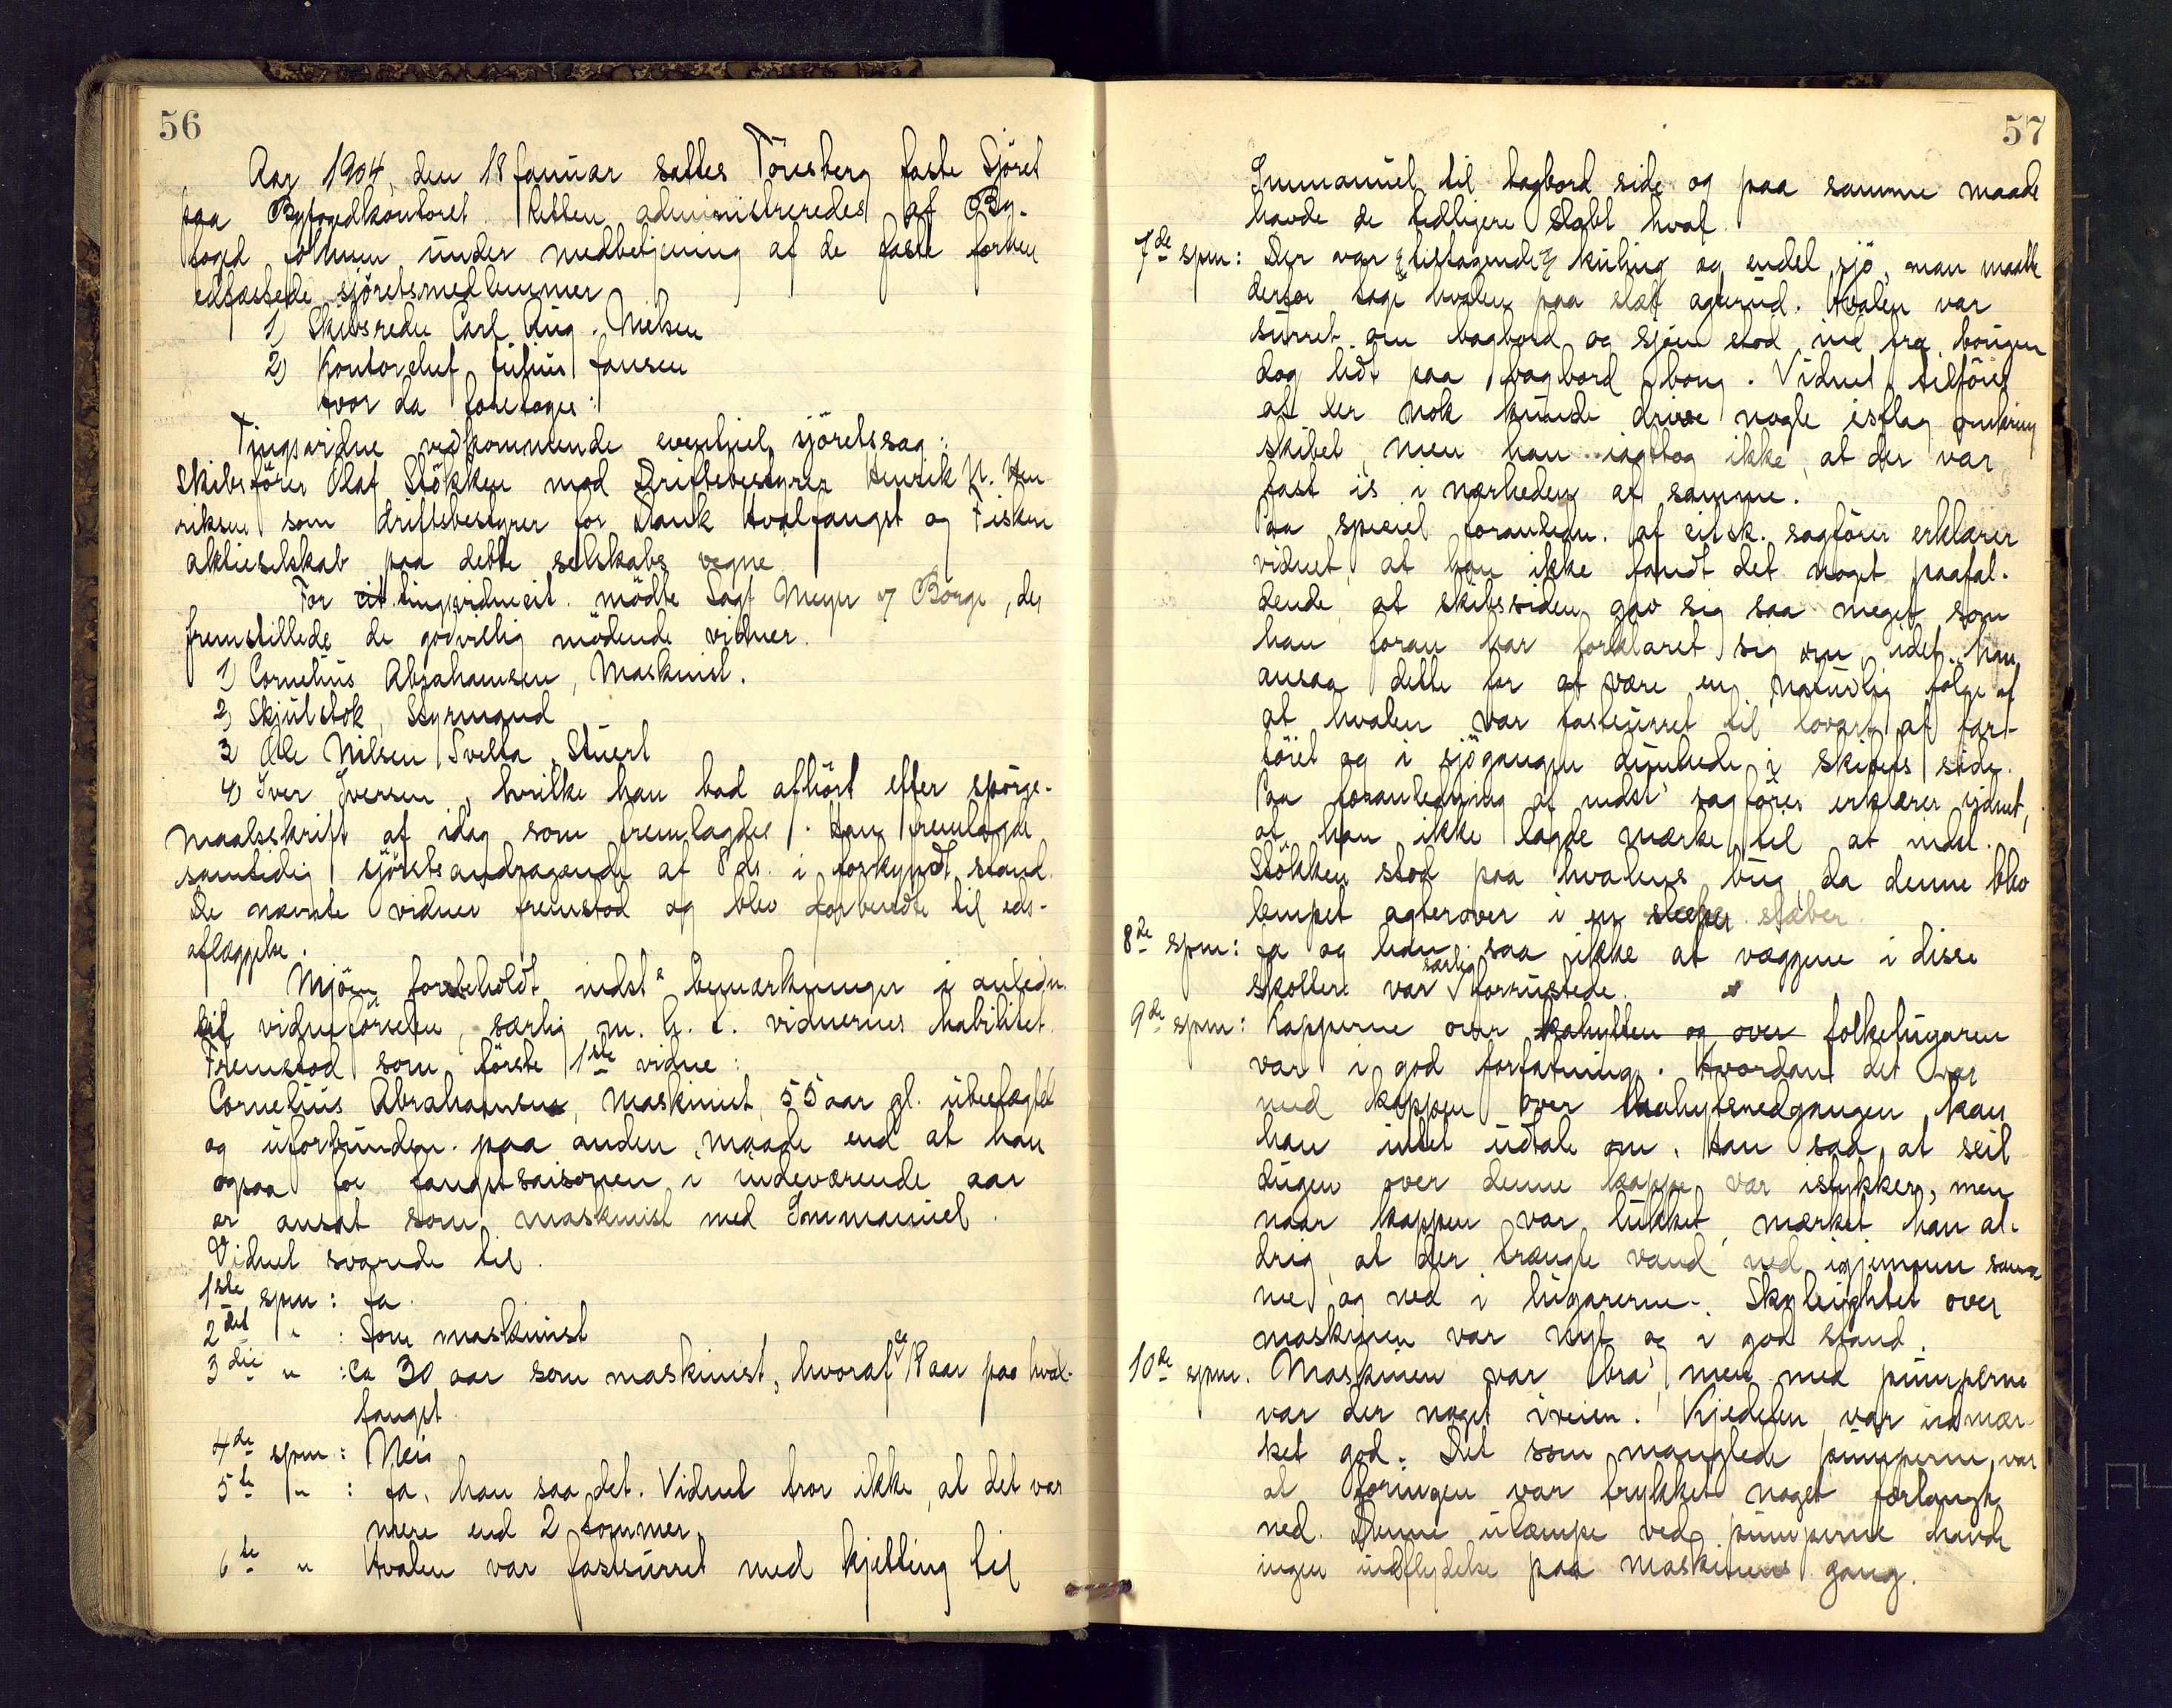 56
Aar 1904, den 18 januar sattes Tönsberg faste Sjöret
paa Byfogedkontoret. Retten administreredes af By-
foged under medbetjening af de faste forhen
edfæstede sjöretsmedlemmer
1) Skibsreder Carl Aug. Nielsen
2) Kontorchef Julius Jansen
hvor da foretoges:
Tingsvidne vedkommende eventuel sjöretssag:
Skibsförer Olaf Stökken mod Driftsbestyrer Henrik N. Hen
riksen som driftsbestyrer for Hvalfangst og Fiskeri
aktieselskab paa dette selskabs vegne
For tingsvidnecit. mödte Sagf Meyer & Börge, der
fremstillede de godvillig mödende vidner.
1) Cornelius Abrahamsen, Maskinist.
2) Skjulstok, Styrmand
3 Ole Nilsen Svelta, Stuert
4) Iver Iversen, hvilke han bad afhört efter spörge-
maalsskrift af idag som fremlagdes. Han fremlagde
samtidig sjöretsandragende af 8 ds. i forkyndt stand.
De nævnte vidner fremstod og blev forberedte til eds-
aflæggelse.
Mjöen forbeholdt indst bemærkninger i anledn.
vidneförselen, særlig m. h. t. vidnernes habilitet.
Fremstod som förste 1ste vidne:
Cornelius Abrahamsen, maskinist, 55 aar gl. ubeslægtet
og uforbunden paa anden maade end at han
ogsaa for fangstsaisonen i indeværende aar
er ansat som maskinist med Immanuel.
Vidnet svarede til
1ste spm: Ja.
2det " : Som maskinist
3die " : ca 30 aar som maskinist, hvoraf ca 18 aar paa hval-
fangst.
4de spm: Nei
5te " : Ja, han saa det. Vidnet tror ikke, at det var
mere end 2 tommer.
6te " Hvalen var fastsurret med kjetting til
57
Immanuel til bagbord side og paa samme maade
havde de tidligere slæbt hval.
7de spm: Der var tiltagende kuling og endel sjö, man maatte
derfor tage hvalen paa slæb agterud. Hvalen var
surret om bagbord og sjöen stod ind fra bougen
dog lidt paa bagbord boug. Vidnet tilföier
at der nok kunde drive nogle isflag omkring
skibet, men han iagttog ikke, at der var
fast is i nærheden af samme.
Paa speciel foranledn. af citsk. sagförer erklærer
vidnet, at han ikke fandt det noget paafal-
dende, at skibssiden gav sig saa meget som
han foran har forklaret sig om, idet han
ansaa dette for at være en naturlig fölge af
at hvalen var fastsurret til luvart af far-
töiet og i sjögangen dunkede i skibets side.
Paa foranledning af indst sagförer erklærer vidnet,
at han ikke lagde mærke til at indst.
Stökken stod paa hvalens bug, da denne blev
lempet agterover i en slæber.
8de spm: Ja og han saa ikke at væggene i disse
skotter var særlig forrustede.
9de spm: Kapperne over kahytten og over folkelugaren
var i god forfatning. Hvordan det var
med kappen over kahytsnedgangen, kan
han intet udtale om. Han saa, at seil
dugen over denne kappe var istykker, men
naar kappen var lukket mærket han al-
drig, at der trængte vand ned igjennem sam
me og ned i lugarerne. Skyleightet over
maskinen var nyt og i god stand.
10de spm. Maskinen var bra, men med pumperne
var der noget iveien. Kjedelen var udmær-
ket god. Det som manglede pumperne, var
at foringen var trykket noget forlangt
ned. Denne ulæmpe ved pumperne havde
ingen indflydelse paa maskinens gang.